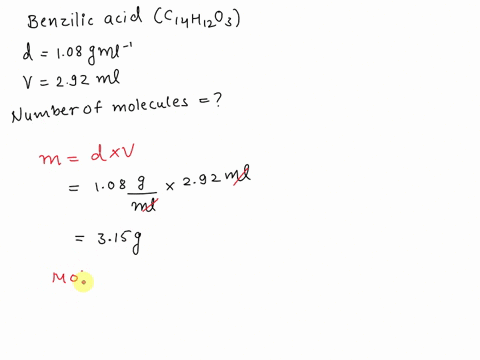 Benzilic acid (C₁₄H₁₂O₃)
d = 1.08 gml⁻¹
V = 2.92 ml
Number of molecules = ?
m = d×V
= 1.08 g/ml × 2.92 ml
= 3.15g
Mo